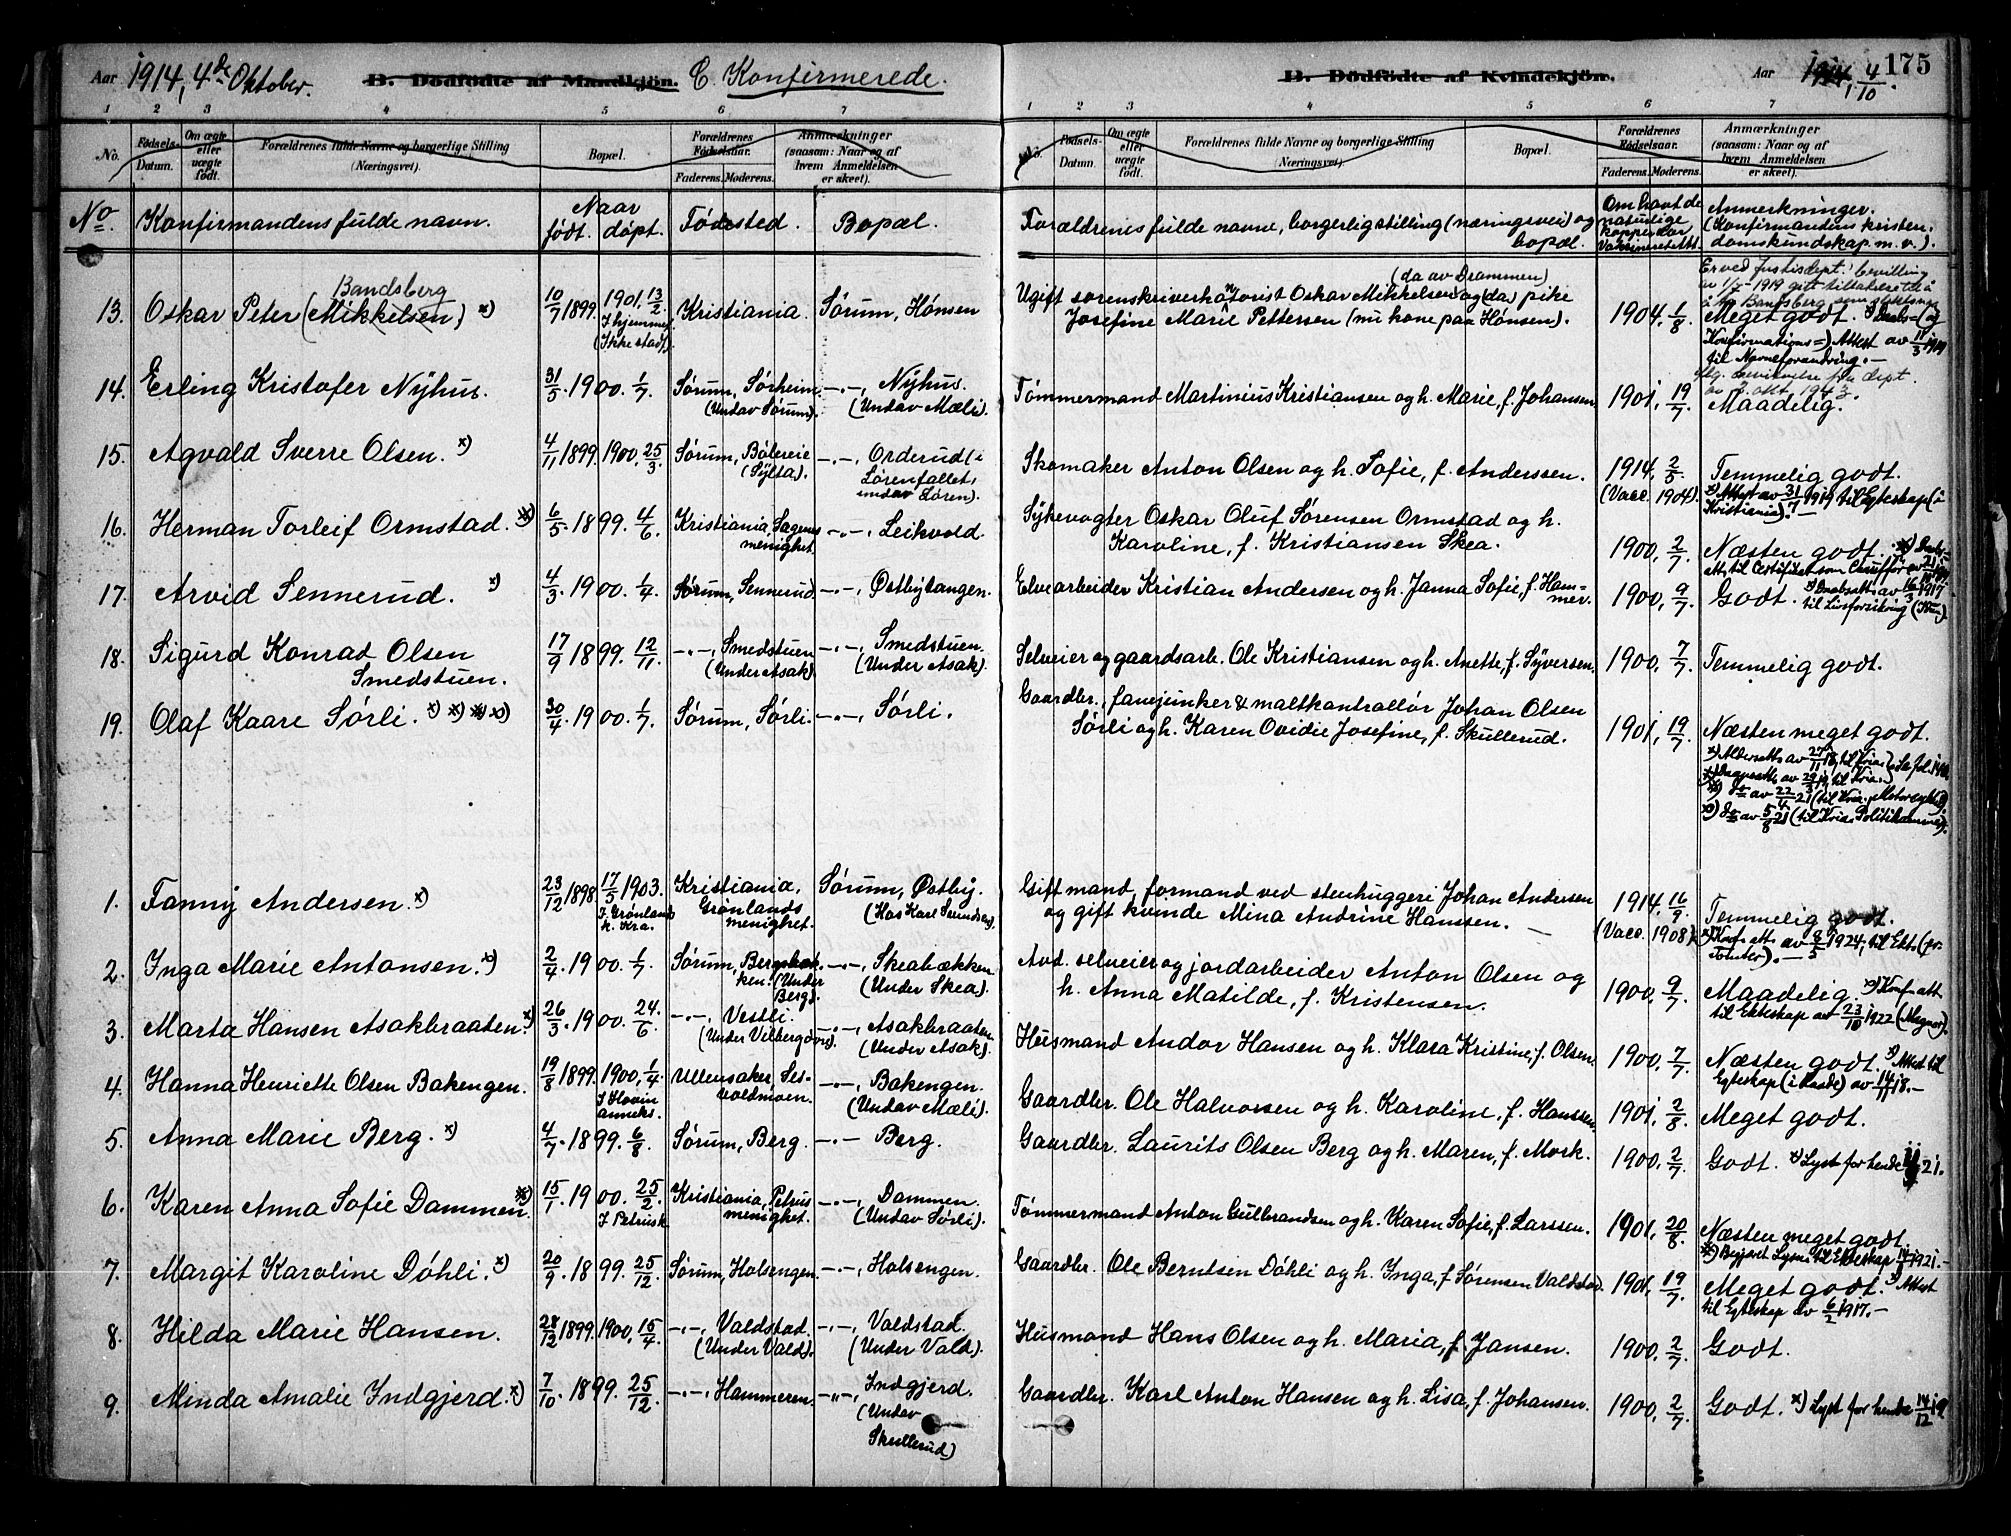 Aar 1914, 4de Oktober. B. Dødfødte af Mandkjøn. C. Konfirmerede.
1 2 3 4 5 6 7
No. Fødsels-Datum. Om ægte eller uægte født. Forældrenes fulde Navne og borgerlige Stilling (Næringsvei). Bopæl. Forældrenes Fødselsaar. Faderens. Moderens. Anmærkninger (saasom: Naar og af hvem Anmeldelsen er skeet).
No. Konfirmandens fulde navn. Naar født. døpt. Fødested. Bopæl.
Bandsberg
13. Oskar Peter (Mikkelsen) x) 10/7 1899. 1901, 13/2 Kristiania. Sørum, Hønsen
I hjemmet (Ikke stadf.).
14. Erling Kristofer Nyhus. 31/5. 1900. 1/7. Sørum, Sørheim –"–, Nyhus.
(Undav Sørum). (Undav Mæli).
15. Agvald Sverre Olsen. x) 4/11 1899. 1900. 25/3. Sørum, Bølereie –"–, Orderud (i
(Sylta). Sørenfallet, undav Søren).
16. Herman Torleif Ormstad. x) 6/5. 1899. 4/6. Kristiania, Sagenes –"–, Leikvold.
menighet
17. Arvid Sennerud. x) 4/3. 1900. 1/4. Sørum, Sennerud –"–, Østbytangen.
18. Sigurd Konrad Olsen 17/9 1899. 12/11. –"–, Smedstuen –"–, Smedstuen.
Smedstuen. (Under Asak) (Under Asak).
19. Olaf Kaare Sørli. x) x) x) x) 30/4. 1900. 1/7. Sørum, Sørli. –"–, Sørli.
1. Fanny Andersen. x) 23/12 1898. 17/5 1903. Kristiania, Sørum, Østby.
I Grønlands k. Kra. Grønlands menighet.
2. Inga Marie Antonsen. x) 2/4. 1900. 1/7. Sørum, –"–, Skeabækken
(Under Berg). (Under Skea).
3. Marta Hansen Asakbraaten. x) 26/3. 1900. 24/6. –"–, Vestli. –"–, Asakbraaten
(Under Asak).
4. Hanna Henriette Olsen Bakengen. 19/8 1899. 1900, 1/4 Ullensaker, –"–, Bakengen.
I Hovin anneks. (Undav Mæli).
5. Anna Marie Berg. x) 4/7. 1899. 6/8. Sørum, Berg. –"– Berg.
6. Karen Anna Sofie Dammen. x) 15/1. 1900. 25/2. Kristiania, Petrus –"–, Dammen.
I Petrusk. menighet. (Undav Sørli).
7. Margit Karoline Døhli. x) 20/9. 1899. 25/12. Sørum, Holsengen. –"–, Holsengen.
8. Hilda Marie Hansen. 28/12 1899. 1900, 15/4. –"–, Valdstad. –"–, Valdstad.
(Under Vald). (Under Vald).
9. Minda Amalie Indgjerd. x) 7/10. 1899. 25/12. –"–, Hammeren. –"–, Indgjerd.
(Undav Skullerud)
B. Dødfødte af Kvindekjøn. Aar 1914, 4/10. 175
1 2 3 4 5 6 7
No. Fødsels-Datum. Om ægte eller uægte født. Forældrenes fulde Navne og borgerlige Stilling (Næringsvei). Bopæl. Forældrenes Fødselsaar. Faderens. Moderens. Anmærkninger (saasom: Naar og af hvem Anmeldelsen er skeet).
Forældrenes fulde navne, borgerlig stilling (næringsvei) og bopæl. Om havt de naturlige kopper eller vaksineret. Att. Anmerkninger. (Konfirmandens kristendomskundskap m. v.).
(da av Drammen)
Ugift sorenskriverkontorist Oskar Mikkelsen og (da) pike 1904, 1/8
Josefine Marie Pettersen (nu kone paa Hønsen).
Er ved Justisdept. bevilling
av 1919 gitt tillatelse til å
Bandsberg som slektsnavn
Meget godt. x) Daabs- (og
Konfirmations=) Attest av 11/3 1919
til Navneforandring. –
av 2. okt 1943.
Tømmermand Martinius Kristiansen og h. Marie, f. Johansen 1901, 19/7. Maadelig.
Skomaker Anton Olsen og h. Sofie, f. Anderssen. 1914, 2/5. Temmelig godt.
(Vacc. 1904). x) Attest av 31/7 1919 til Egteskap (i
Kristiania). –
Sykevogter Oskar Oluf Sørensen Ormstad og h.
Karoline, f. Kristiansen Skea. 1900, 2/7. Næsten godt. x) Daabs=
att. til Certifikat som Chauffør av
Elvearbeider Kristian Andersen og h. Janna Sofie, f. Hammer. 1900, 9/7. Godt. x) Daabsatt. av 16/3 1917
til Livsforsikring
Selveier og gaardsarb. Ole Kristiansen og h. Anette, f. Syversen. 1900, 7/7. Temmelig godt.
Gaardbr., fanejunker & maltkontrollør Johan Olsen
Sørli og h. Karen Ovidie Josefine, f. Skullerud. 1901, 19/7. Næsten meget godt.
x) Aldersatt. av 27/11 18, til Kria.
x) Daapsatt. av 29/3 19, til Kria.
x) do av 22/4 21 (til Kria.
x) do av 5/8 21 (til Krias Politikammer).
Gift mand, formand ved stenhuggeri Johan Andersen 1914, 16/9. Temmelig godt.
og gift kvinde Mina Andrine Hansen. – (Vacc. 1908). x) Konf. att. av 8/3 1924, til Ektesk.
Avd. selveier og jordarbeider Anton Olsen og
h. Anna Matilde, f. Kristensen. 1900, 9/7. Maadelig. x) Konf. att
til Ekteskap av 23/10 1922 (Magnor).
Husmand Andor Hansen og h. Klara Kristine, f. Olsen. 1900, 7/7. Næsten godt. x) Attest til
Egteskap (i Raade) av
Gaardbr. Ole Halvorsen og h. Karoline, f. Hanssen. 1901, 2/8. Meget godt.
Gaardbr. Laurits Olsen Berg og h. Maren, f. Mork. 1900, 2/7. Godt. x) Lyst for hende
Tømmermand Anton Gulbrandsen og h. Karen Sofie, f. Larssen. 1901, 20/8. Næsten meget godt.
x) Begjært Lysn. til Ekteskap 1921. –
Gaardbr. Ole Berntsen Døhli og h. Inga, f. Sørensen Valdstad. 1901, 19/7. Meget godt. x) Attest
til Egteskap av 6/2 1917. –
Husmand Hans Olsen og h. Maria, f. Jansen. 1900, 2/7. Godt.
Gaardbr. Karl Anton Hansen og h. Lisa, f. Johansen. 1900, 2/7. Godt. x) Lyst for hende 14/12 19